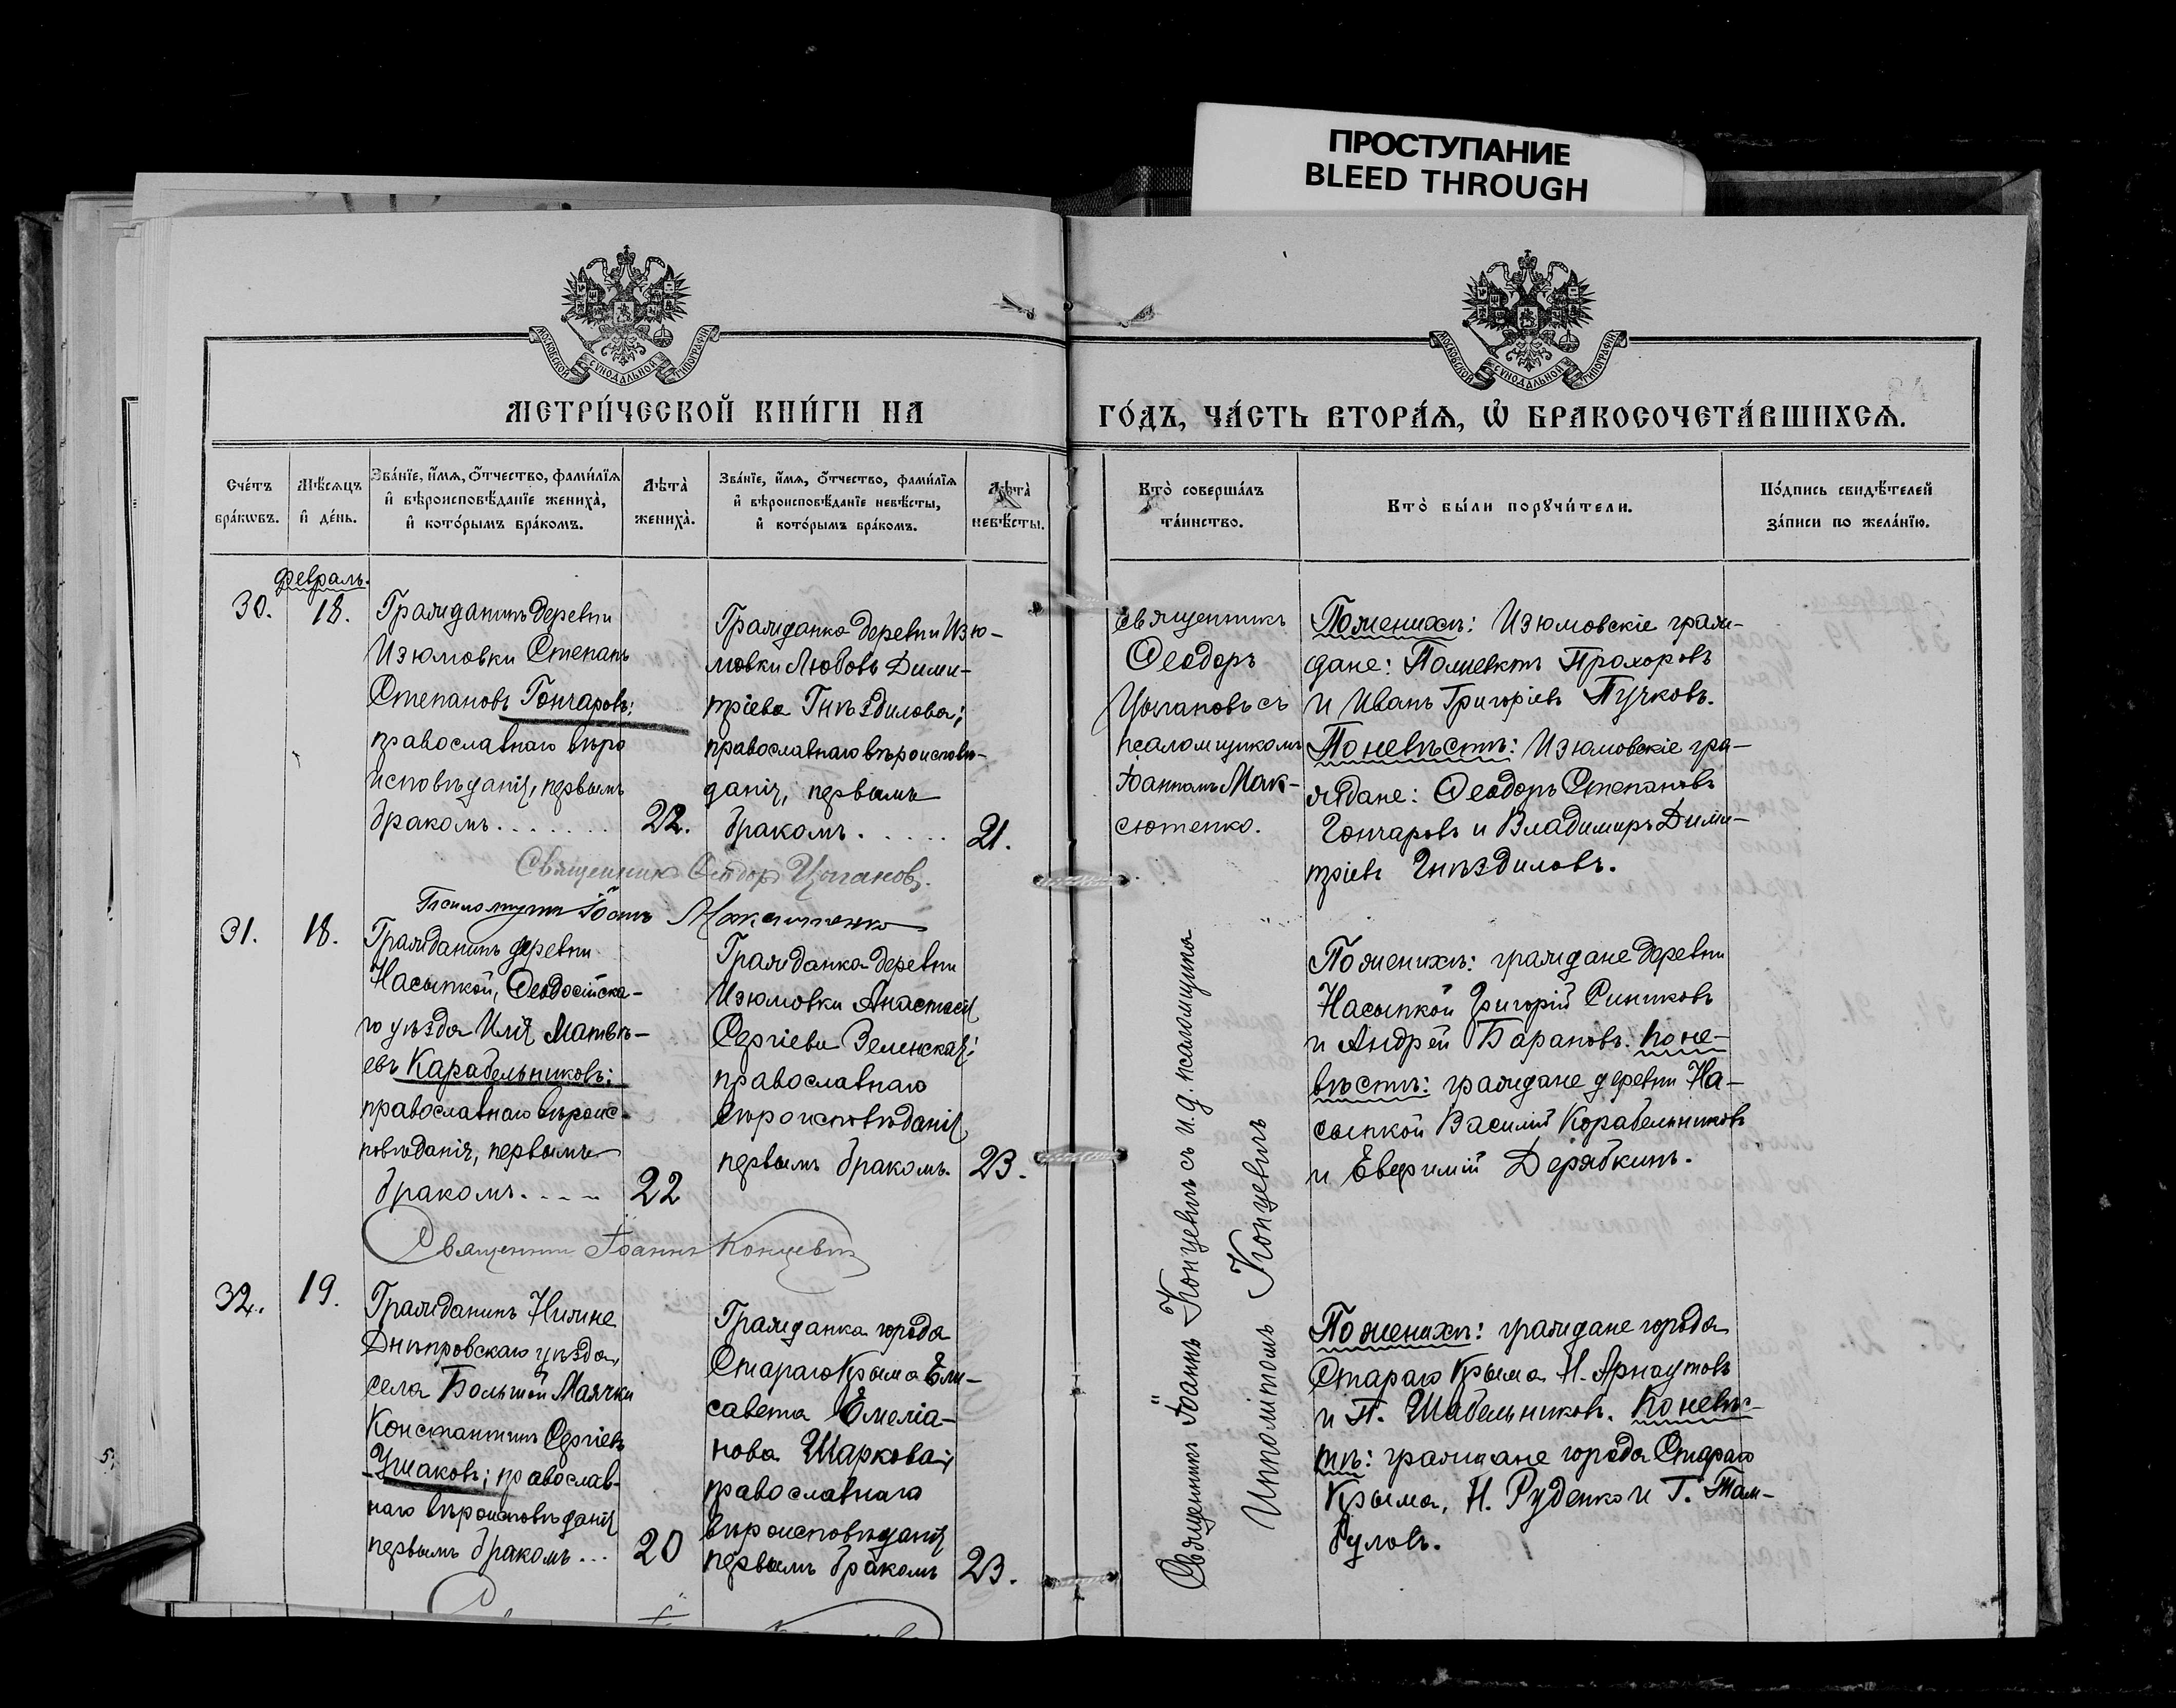 ПРОСТУПАНИЕ
BLEED THROUGH
МОСКОВСКОЙ СѴНОДАЛЬНОЙ ТИПОГРАФІИ
МОСКОВСКОЙ СѴНОДАЛЬНОЙ ТИПОГРАФІИ
МЕТРИ́ЧЕСКОЙ КНИ́ГИ НА
ГО́ДЪ, ЧА́СТЬ ВТОРА́Я, Ѡ БРАКОСОЧЕТА́ВШИХСЯ.
Сче́тъ
бра́кѡвъ.
Мѣ́сяцъ
и҆ де́нь.
Зва́нїе, и҆́мя, ѻ҆́тчество, фами́лїя
и҆ вѣроисповѣ́данїе жениха̀,
и҆ кото́рымъ бра́комъ.
Лѣта̀
жениха̀.
Зва́нїе, и҆́мя, ѻ҆́тчество, фами́лїя
и҆ вѣроисповѣ́данїе невѣ́сты,
и҆ кото́рымъ бра́комъ.
Лѣта̀
невѣ́сты.
Кто̀ соверша́лъ
та́инство.
Кто̀ бы́ли порꙋчи́тели.
По́дпись свидѣ́телей
за́писи по жела́нїю.
Февраль.
30.
18.
Гражданинъ деревни
Изюмовки Степанъ
Степановъ Гончаровъ;
православнаго вѣро
исповѣданія, первымъ
бракомъ.......
22.
Гражданка деревни Изю-
мовки Любовь Дими-
тріева Гнѣздилова;
православнаго вѣроисповѣ-
данія, первымъ
бракомъ.....
21.
Священникъ
Ѳеодоръ
Цыгановъ съ
псаломщикомъ
Іоанномъ Мак-
сютенко.
По женихѣ: Изюмовскіе граж-
дане: Полиевктъ Прохоровъ
и Иванъ Григоріевъ Пучковъ.
По невѣстѣ: Изюмовскіе гра-
ждане: Ѳеодоръ Степановъ
Гончаровъ и Владимиръ Дими-
тріевъ Гнѣздиловъ.
Священникъ Ѳеодоръ Цыгановъ.
Псаломщикъ Іоаннъ Максютенко
31.
18.
Гражданинъ деревни
Насыпкой, Ѳеодосійска-
го уѣзда Илія Матвѣ-
евъ Карабельниковъ;
православнаго вѣроис-
повѣданія, первымъ
бракомъ....
22
Гражданка деревни
Изюмовки Анастасія
Сергіева Зеленская;
православнаго
вѣроисповѣданія
первымъ бракомъ.
23.
По женихѣ: граждане деревни
Насыпкой Григорій Синиковъ
и Андрей Барановъ. По не-
вѣстѣ: граждане деревни На-
сыпкой Василій Корабельниковъ
и Евфимій Дерябкинъ.
Священникъ Іоаннъ Концевичъ
Священникъ Іоаннъ Концевичъ съ и. д. псаломщика
Ипполітомъ Концевичъ
32.
19.
Гражданинъ Нижне
Днѣпровскаго уѣзда,
села Большой Маячки
Константинъ Сергіевъ
Ушаковъ; православ-
наго вѣроисповѣданія
первымъ бракомъ...
20
Гражданка города
Стараго Крыма Ели-
савета Емеліа-
нова Шаркова;
православнаго
вѣроисповѣданія
первымъ бракомъ
23.
По женихѣ: граждане города
Стараго Крыма Н. Арнаутовъ
и П. Шабельниковъ. По невѣс-
тѣ: граждане города Стараго
Крыма, Н. Руденко и Г. Там-
буловъ.